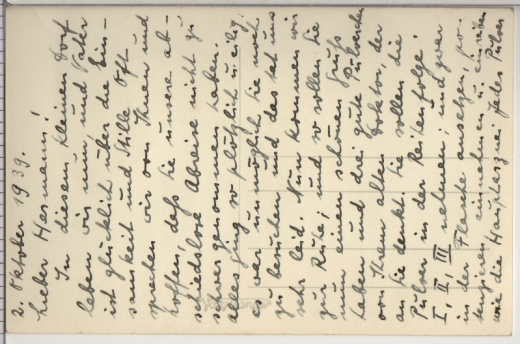 2. Oktober 1939.
Lieber Hermann!
In diesem kleinen Dorf
leben wir nun und Vater
ist glücklich über die Ein-
samkeit und Stille. Oft
sprechen wir von Ihnen und
hoffen, daß Sie unsere ab-
schiedslose Abreise nicht zu
schwer genommen haben.
alles ging so plötzlich u. eilig,
es war unmöglich Sie noch
zu besuchen und das tat uns
sehr leid. Nun kommen wir
zur Ruhe; und so sollen Sie
nun einen schönen Gruß
haben und drei gute Pülverchen
von Ihrem alten Doktor, der
an Sie denkt. Sie sollen die
Pulver in der Reihenfolge:
I, II, III nehmen; und zwar
in der Flasche ansetzen, po-
tenzieren, einnehmen u. einreiben
wie die Hauptarznei. Jedes Pulver